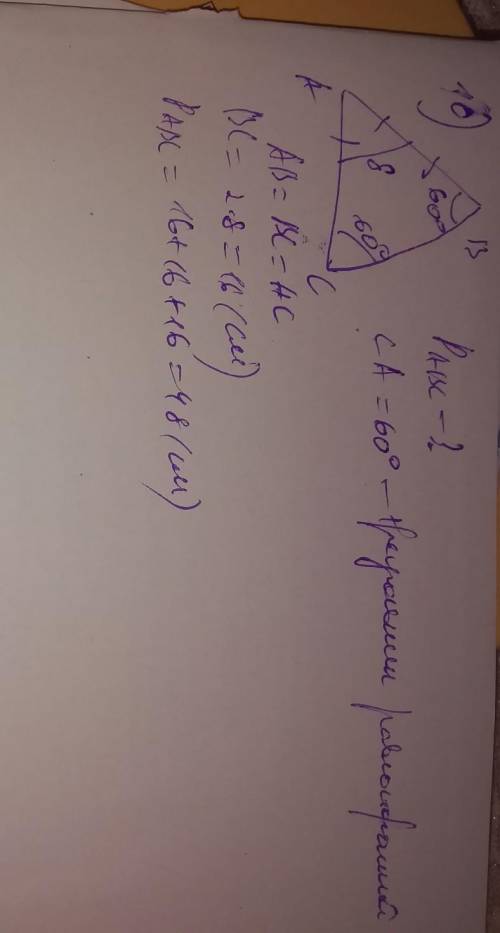 16)
B
60°
8
60°
A
C
P ABC - ?
∠A = 60° - треугольник равносторонний
AB = BC = AC
BC = 2·8 = 16 (см)
P ABC = 16+16+16 = 48 (см)